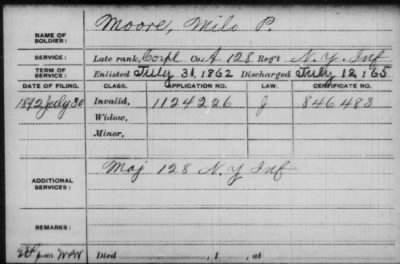 Moore, Milo P.
NAME OF
SOLDIER:
SERVICE: Late rank, Corpl Co. A 128 Reg't N.Y. Inf
TERM OF
SERVICE: Enlisted July 31, 1862 Discharged July 12, 1865
DATE OF FILING. CLASS. APPLICATION NO. LAW. CERTIFICATE NO.
1892 July 30 Invalid, 1124226 J 846483
Widow,
Minor,
ADDITIONAL
SERVICES: Maj 128 N.Y Inf
REMARKS:
Died , 1 , at